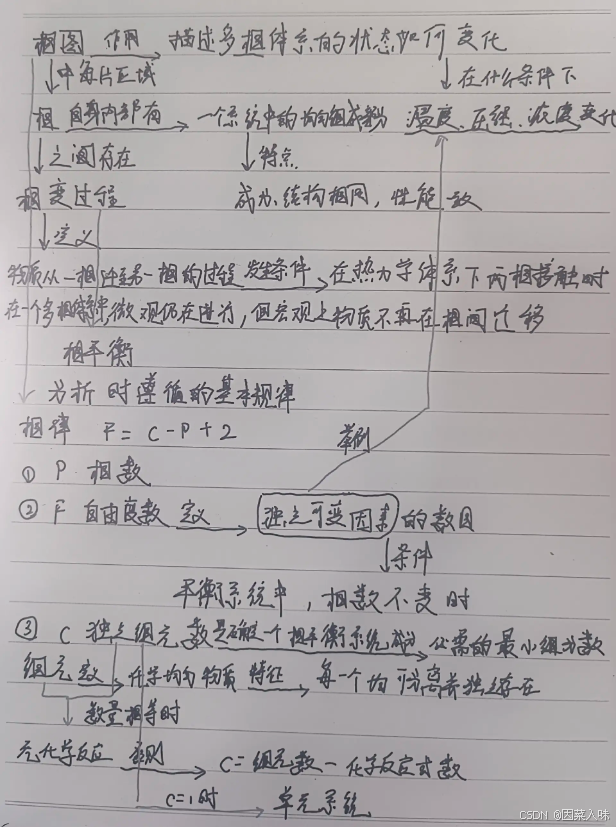 相图 作用 描述多相体系的状态如何变化
中每片区域 在什么条件下
相 自身内部有 一个系统中的均匀组成部分 温度、压强、浓度变化
之间存在 特点
相变过程 成分、结构相同,性能一致
定义
物质从一相转至另一相的过程 发生条件 在热力学体系下两相接触时
在一个多相体系中,微观仍在进行,但宏观上物质不再在相间迁移
相平衡
分析时遵循的基本规律
相律 F = C - P + 2 举例
① P 相数
② F 自由度数 定义 独立可变因素 的数目
条件
平衡系统中,相数不变时
③ C 独立组元数 是确定一个相平衡系统成分 必需的最小组分数
组元 定义 化学均匀物质 特征 每一个均可分离并独立存在
数量相等时
无化学反应 否则 C = 组元数 - 化学反应式数
C=1时 单元系统
CSDN @因菜入昧